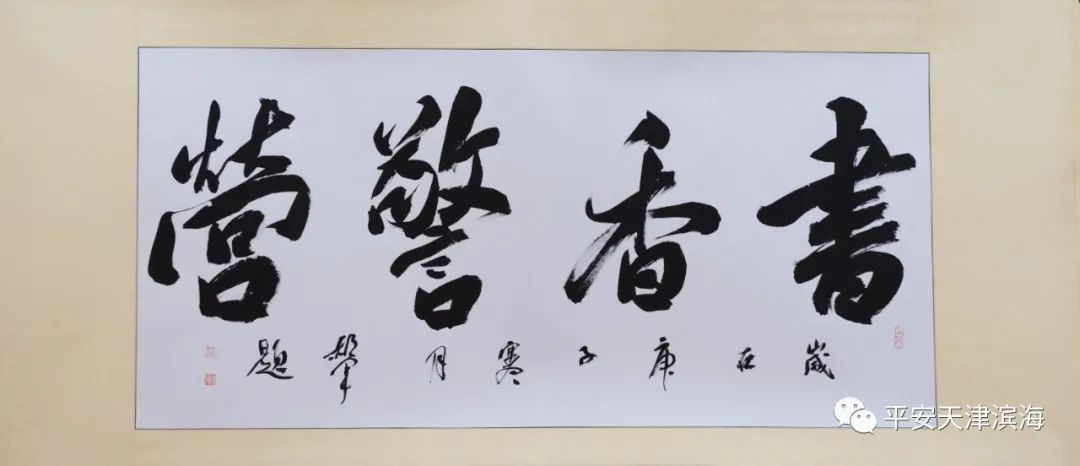 書香警營
歲在庚子寒月肇題
平安天津滨海